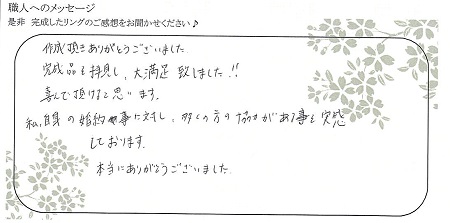 職人へのメッセージ
是非 完成したリングのご感想をお聞かせください♪
作成頂きありがとうございました
完成品を拝見し、大満足致しました!!
喜んで頂けると思います。
私自身の婚約事に対し、多くの方の協力がある事を実感
しております。
本当にありがとうございました